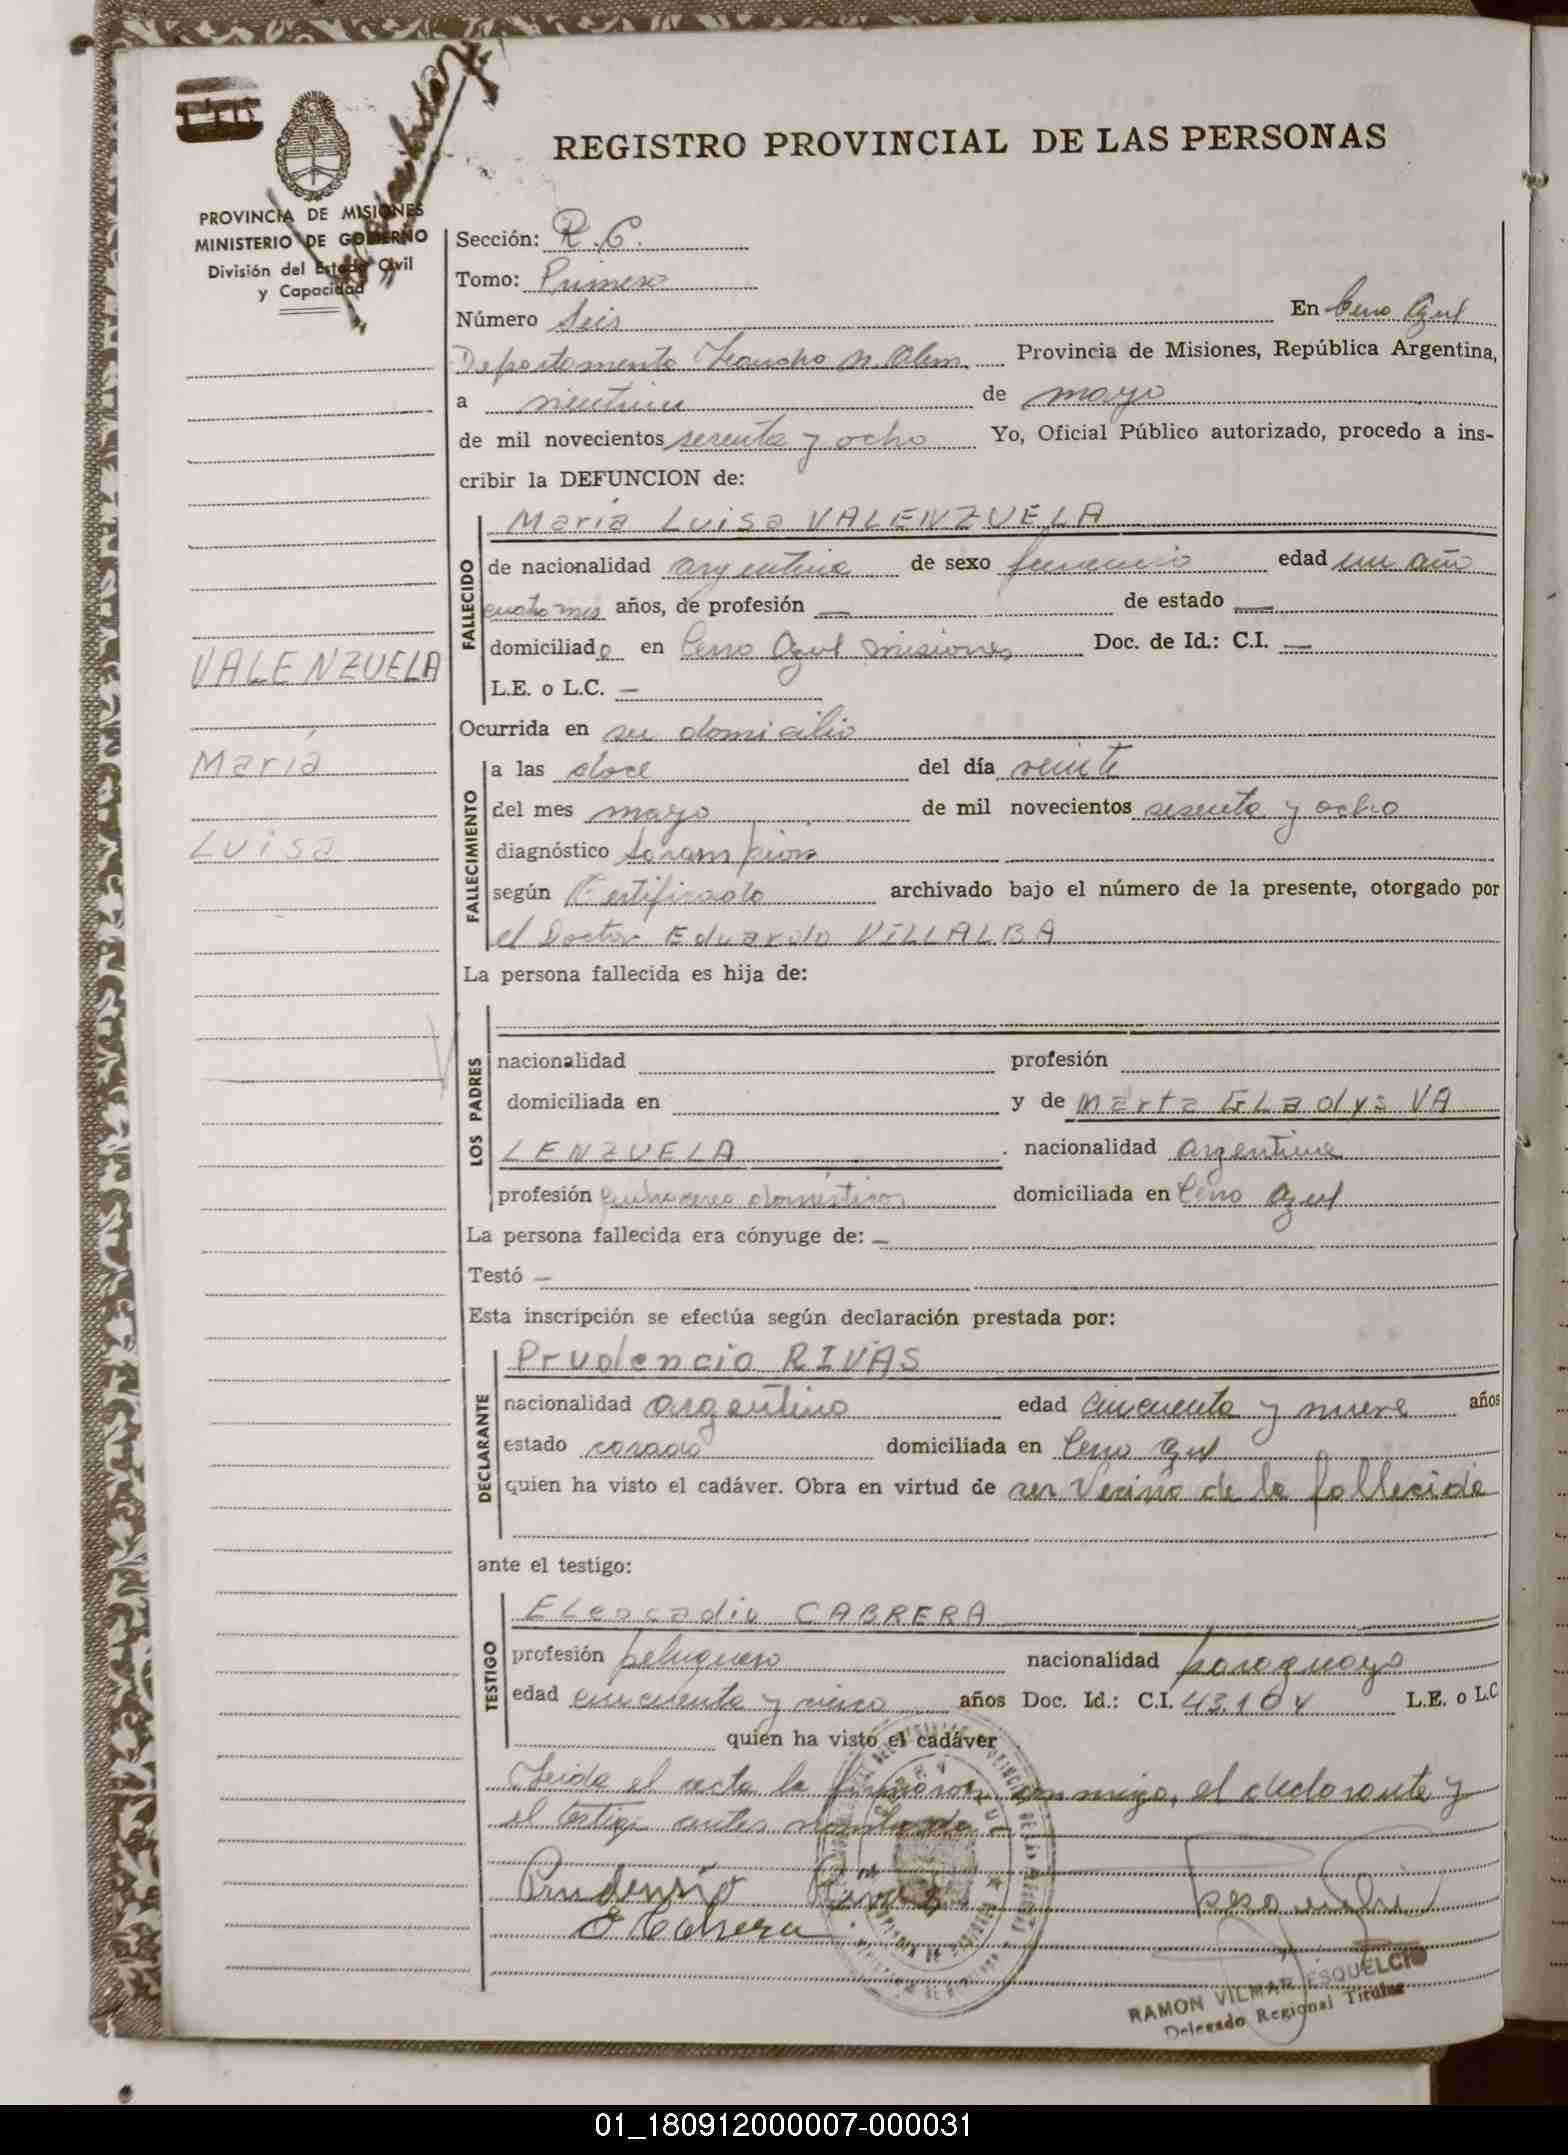 REGISTRO PROVINCIAL DE LAS PERSONAS
PROVINCIA DE MISIONES
MINISTERIO DE GOBIERNO
División del Estado Civil
y Capacidad
Sección: R.C.
Tomo: Primero
Número Seis En Cerro Azul
Departamento Leandro N. Alem Provincia de Misiones, República Argentina,
a veintiuno de mayo
de mil novecientos sesenta y ocho Yo, Oficial Público autorizado, procedo a ins-
cribir la DEFUNCION de:
María Luisa VALENZUELA
FALLECIDO
de nacionalidad argentina de sexo femenino edad un año
cuatro mes años, de profesión — de estado —
domiciliado en Cerro Azul Misiones Doc. de Id.: C.I. —
L.E. o L.C. —
VALENZUELA
María
Luisa
Ocurrida en su domicilio
FALLECIMIENTO
a las doce del día veinte
del mes mayo de mil novecientos sesenta y ocho
diagnóstico Sarampión
según Certificado archivado bajo el número de la presente, otorgado por
el Doctor Eduardo VILLALBA
La persona fallecida es hija de:
LOS PADRES
nacionalidad profesión
domiciliada en y de Marta GLadys VA
LENZUELA. nacionalidad argentina
profesión quehaceres domésticos domiciliada en Cerro Azul
La persona fallecida era cónyuge de: —
Testó —
Esta inscripción se efectúa según declaración prestada por:
DECLARANTE
Prudencio RIVAS
nacionalidad argentino edad cincuenta y nueve años
estado casado domiciliada en Cerro Azul
quien ha visto el cadáver. Obra en virtud de ser Vecino de la fallecida
ante el testigo:
TESTIGO
ELeocadio CABRERA
profesión peluquero nacionalidad paraguayo
edad cincuenta y cinco años Doc. Id.: C.I. 43.104 L.E. o L.C
quien ha visto el cadáver
Leida el acta la firmaron conmigo, el declarante y
el testigo antes nombrado
Prudensio Rivas
E Cabrera
RAMON VILMAR ESQUELCIO
Delegado Regional Titular
01_180912000007-000031